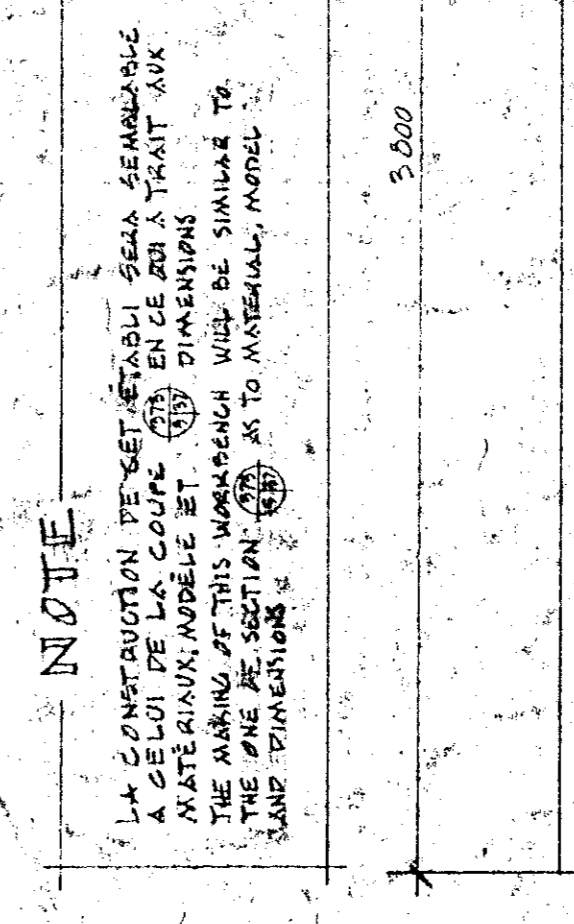 NOTE
LA CONSTRUCTION DE CET ÉTABLI SERA SEMBLABLE
A CELUI DE LA COUPE 373 EN CE QUI A TRAIT AUX
MATÉRIAUX, MODÈLE ET DIMENSIONS
THE MAKING OF THIS WORKBENCH WILL BE SIMILAR TO
THE ONE DE SECTION 373 AS TO MATERIAL, MODEL
AND DIMENSIONS
3 800